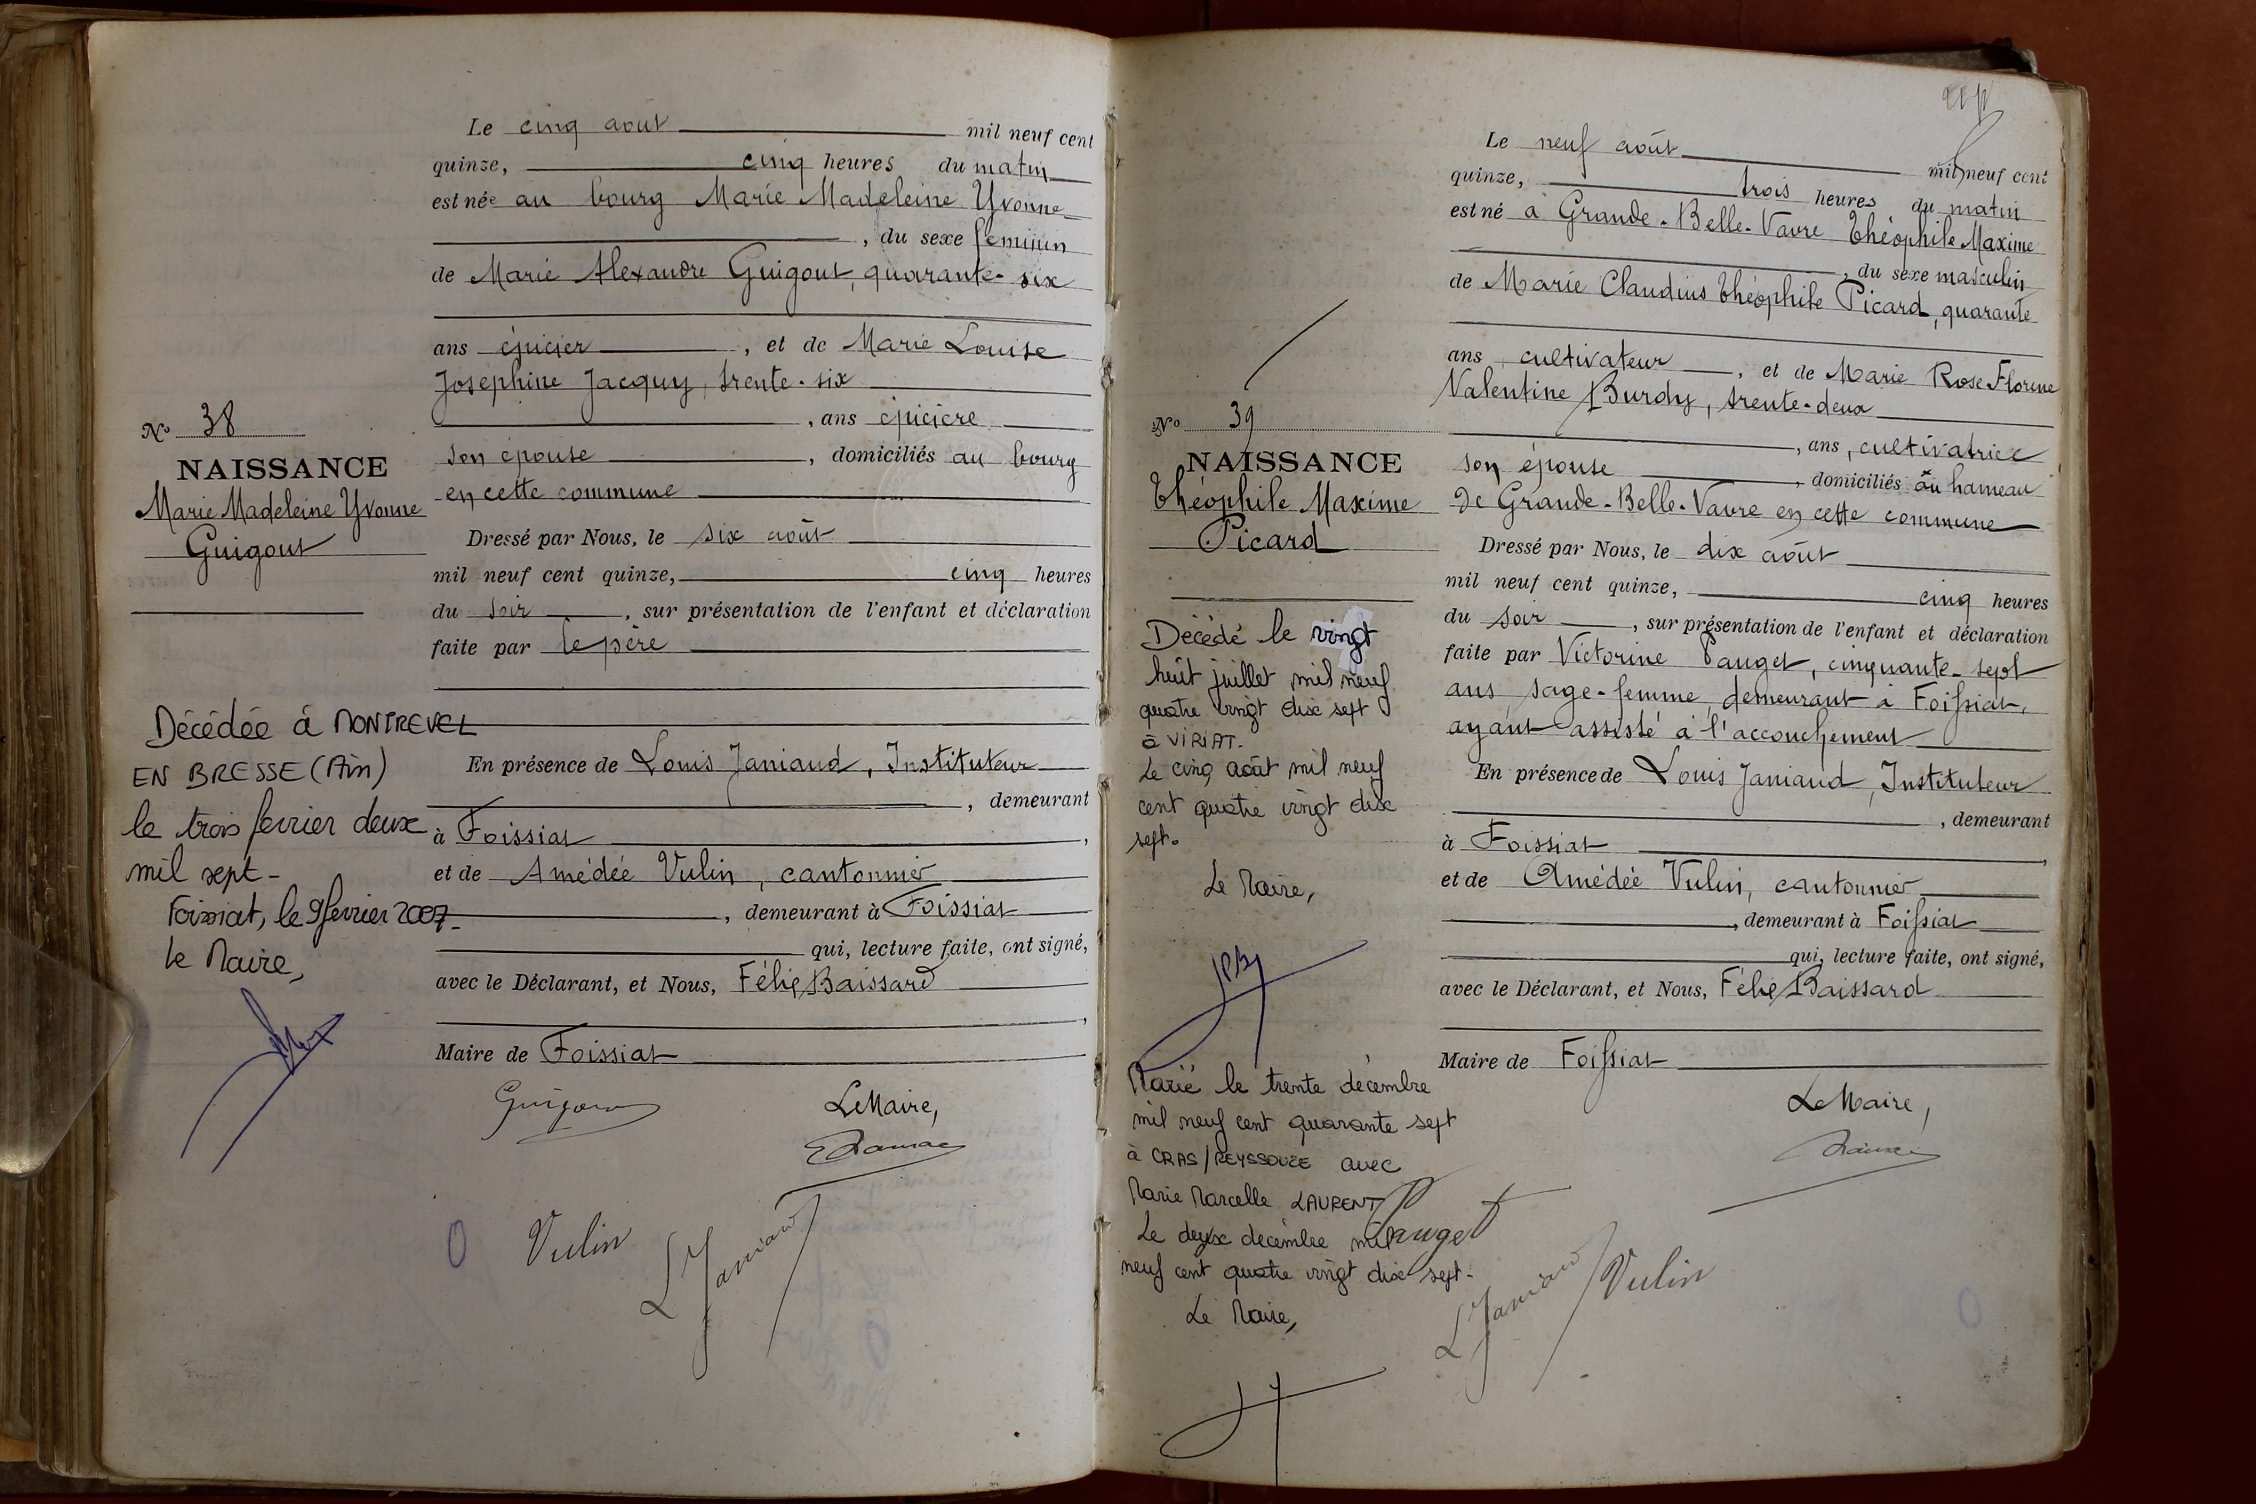 Le cinq août mil neuf cent
quinze, cinq heures du matin
est née au bourg Marie Madeleine Yvonne
, du sexe feminin
de Marie Alexandre Guigout, quarante-six
ans épicier, et de Marie Louise
Joséphine Jacquy, trente-six
, ans épicière
son épouse, domiciliés au bourg
en cette commune
Dressé par Nous, le six août
mil neuf cent quinze, cinq heures
du soir, sur présentation de l'enfant et déclaration
faite par le père
En présence de Louis Janiaud, Instituteur
, demeurant
à Foissiat,
et de Amédée Vulin, cantonnier
, demeurant à Foissiat
qui, lecture faite, ont signé,
avec le Déclarant, et Nous, Félix Baissard
,
Maire de Foissiat
Guigout
Le Maire,
Vulin
L Janiaud
No 38
NAISSANCE
Marie Madeleine Yvonne
Guigout
Décédée à MONTREVEL
EN BRESSE (Ain)
le trois fevrier deux
mil sept -
Foissiat, le 9 fevrier 2007.
Le Maire,
Le neuf août mil neuf cent
quinze, trois heures du matin
est né à Grande-Belle-Vavre Théophile Maxime
, du sexe masculin
de Marie Claudius Théophile Picard, quarante
ans, cultivateur, et de Marie Rose Florine
Valentine Burdy, trente-deux
, ans, cultivatrice
son épouse, domiciliés au hameau
de Grande-Belle-Vavre en cette commune
Dressé par Nous, le dix août
mil neuf cent quinze, cinq heures
du soir, sur présentation de l'enfant et déclaration
faite par Victorine Pauget, cinquante-sept
ans, sage-femme, demeurant à Foissiat,
ayant assisté à l'accouchement
En présence de Louis Janiaud, Instituteur
, demeurant
à Foissiat,
et de Amédée Vulin, cantonnier
, demeurant à Foissiat
qui, lecture faite, ont signé,
avec le Déclarant, et Nous, Félix Baissard
Maire de Foissiat
Le Maire,
Pauget
L Janiaud
Vulin
No 39
NAISSANCE
Théophile Maxime
Picard
Décédé le vingt
huit juillet mil neuf
quatre vingt dix sept
à VIRIAT.
Le cinq août mil neuf
cent quatre vingt dix
sept.
Le Maire,
Marié le trente décembre
mil neuf cent quarante sept
à CRAS/REYSSOUZE avec
Marie Marcelle LAURENT
Le deux décembre mil
neuf cent quatre vingt dix sept.
Le Maire,